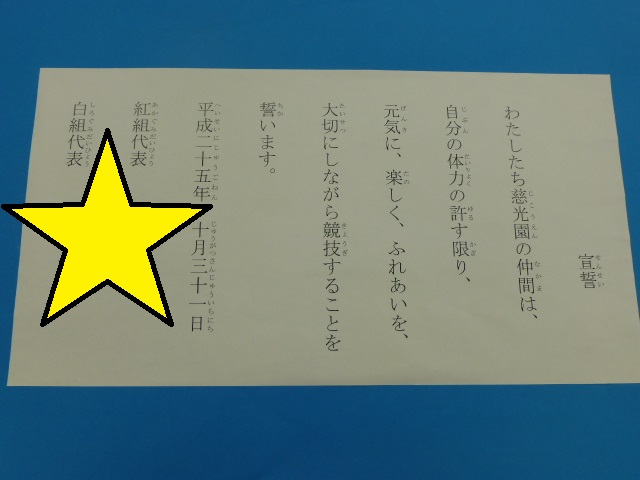 宣誓
わたしたち慈光園の仲間は、
自分の体力の許す限り、
元気に、楽しく、ふれあいを、
大切にしながら競技することを
誓います。
平成二十五年 十月三十一日
紅組代表
白組代表